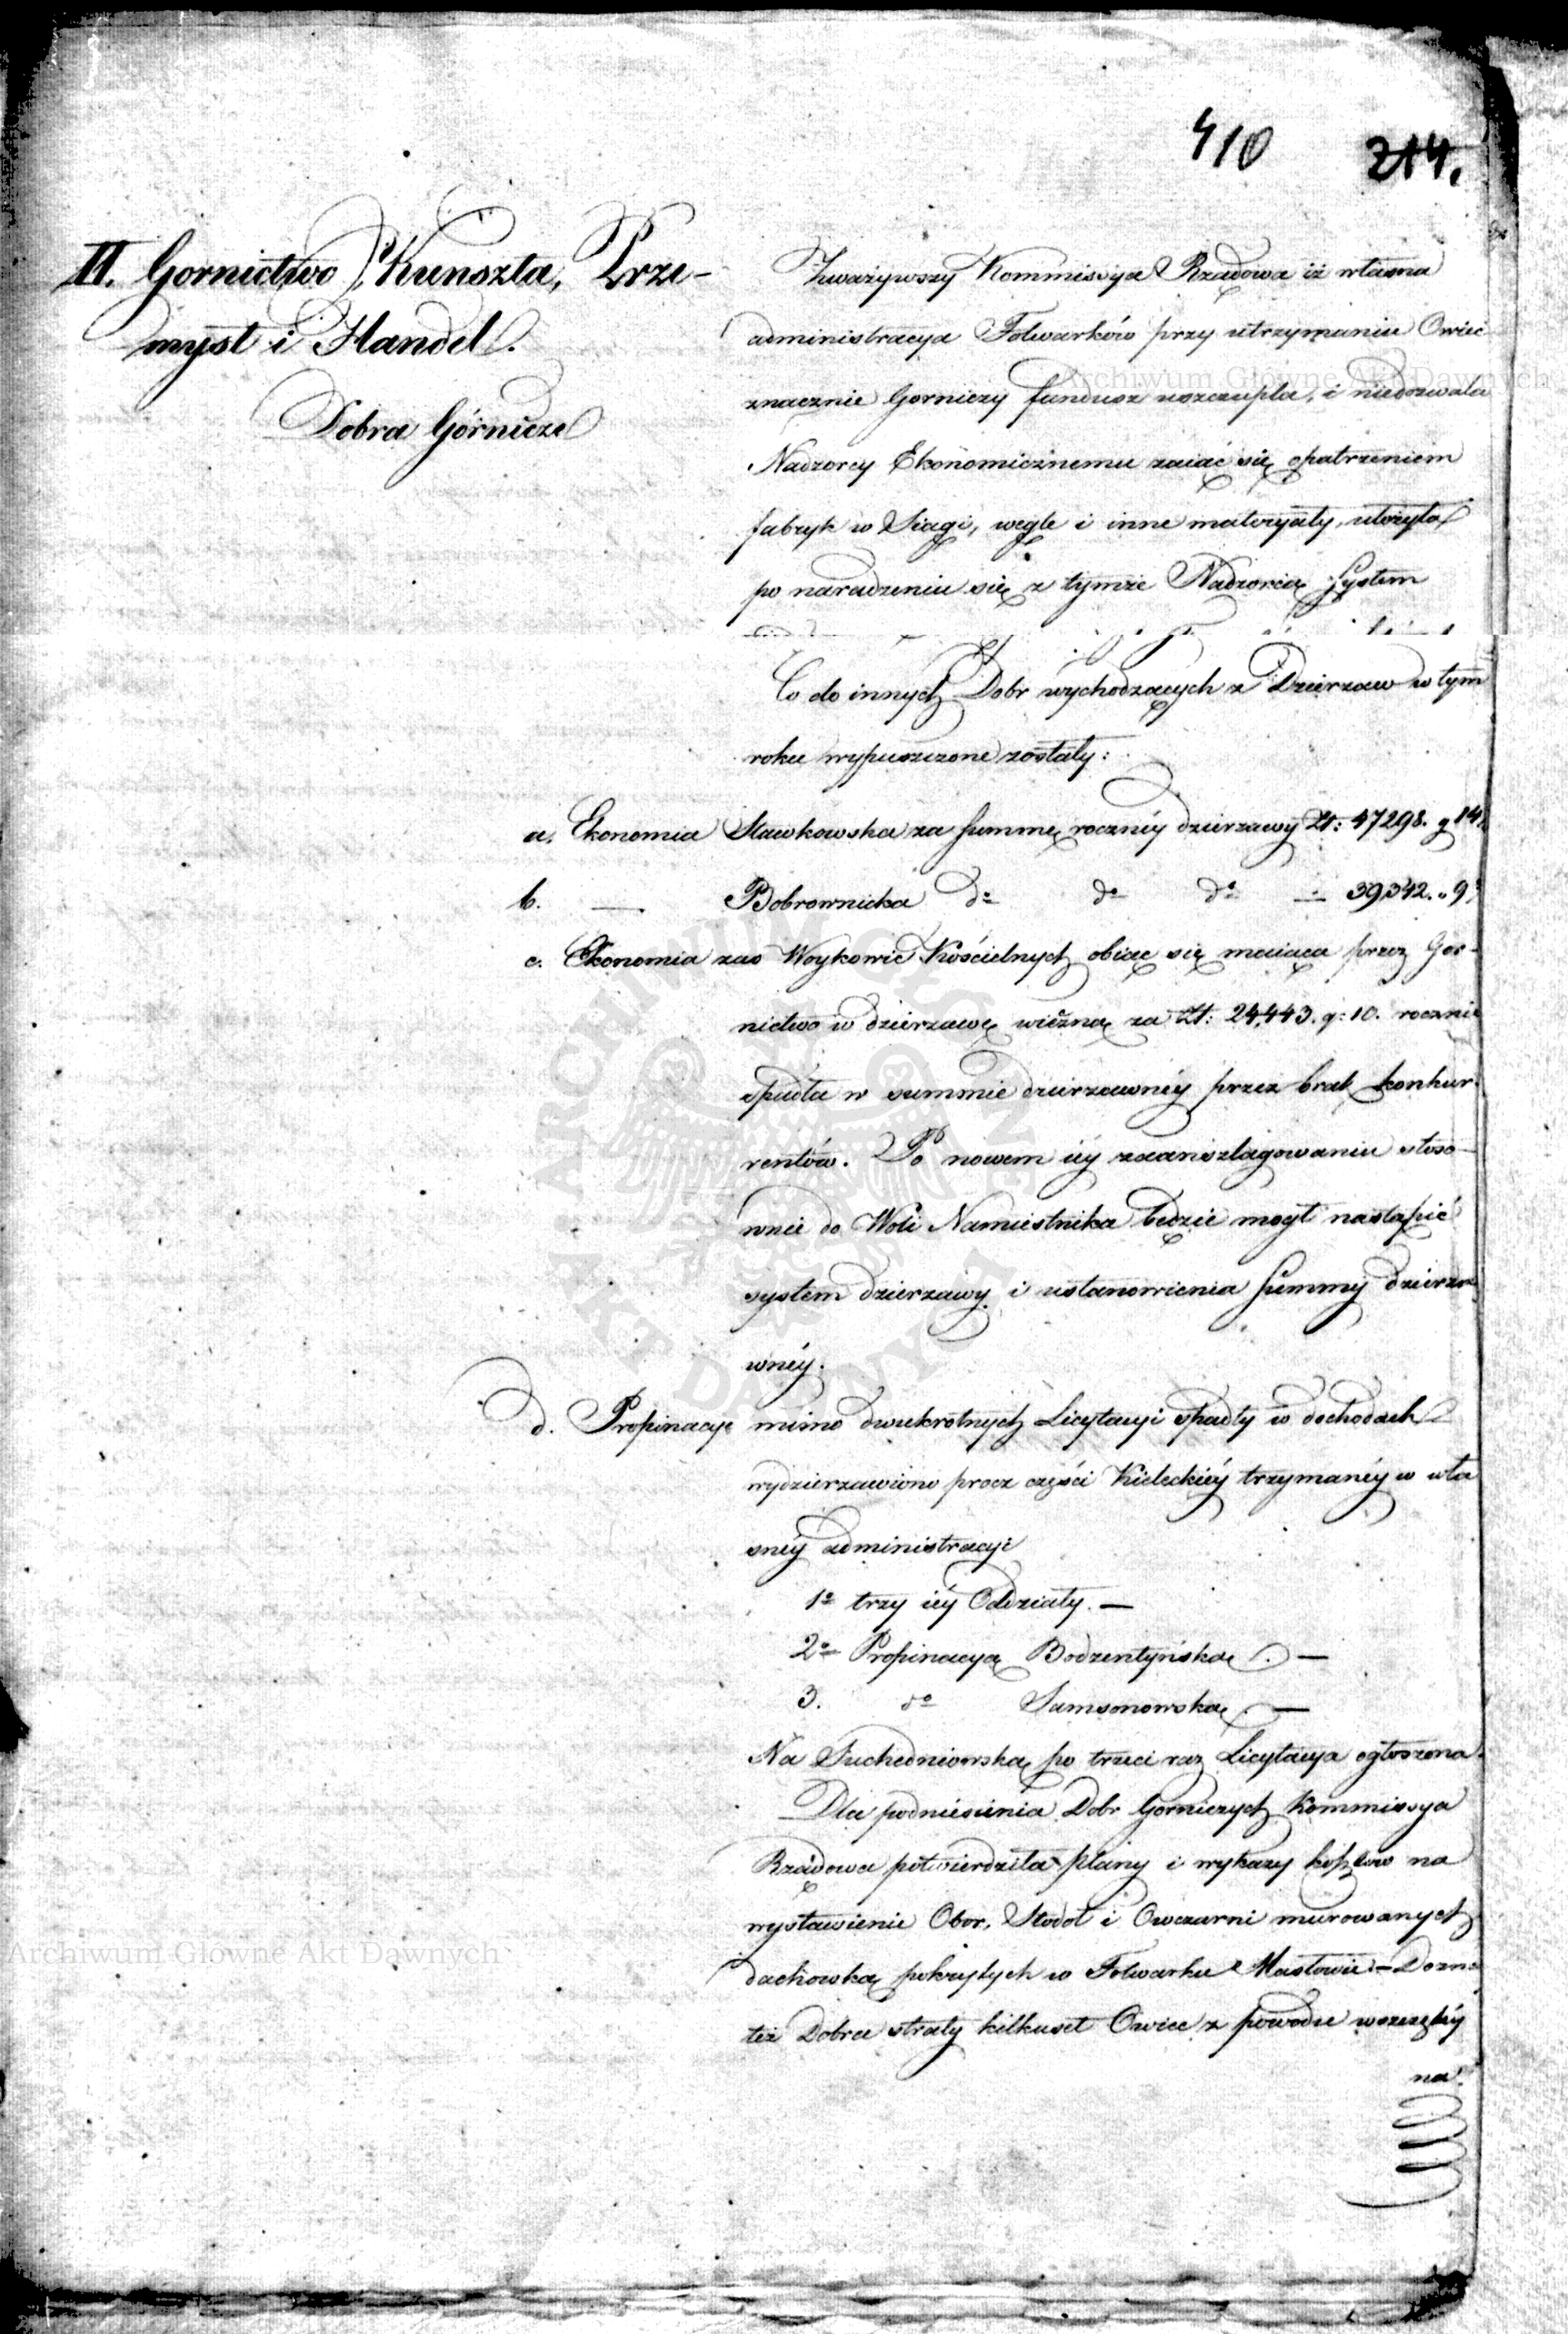 410 214.
II. Gornictwo, Kunszta, Prze-
mysł i Handel.
Dobra Górnicze
Zważywszy Kommissya Rządowa iż własna
administracya Folwarków przy utrzymaniu Owiec
znacznie Gorniczy fundusz uszczupla, i niedozwala
Nadzorcy Ekonomicznemu zaiąć się opatrzeniem
fabryk w Siągi, węgle i inne materyały, ułożyła
po naradzeniu się z tymże Nadzorcą System
Co do innych Dobr wychodzących z Dzierżaw w tym
roku wypuszczone zostały:
a. Ekonomia Sławkowska za Summę roczney dzierzawy Zł: 47298. g 14.
b. — Bobrownicka do do do — 39342. „ 9.
c. Ekonomia zaś Woykowic Kościelnych obiąć się maiąca przez Gor-
nictwo w dzierzawę wieczną za Zł: 24,443. g: 10. rocznie
spadła w summie dzierzawnéy przez brak konkur-
rentów. Po nowem iéy zaanszlagowaniu stoso-
wnie do Woli Namiestnika będzie mogł nastąpić
system dzierzawy i ustanowienia Summy dzierza-
wnéy.
d. Propinacye mimo dwukrotnych Licytacyi spadły w dochodach
wydzierzawiono procz części Kieleckiéy trzymanéy w wła
snéy administracyi
1o trzy iéy Oddziały. —
2o Propinacyą Bodzentyńską. —
3. do Samsonowską. —
Na Suchedniowską po trzeci raz Licytacya ogłoszona.
Dla podniesienia Dobr Gorniczych Kommissya
Rządowa potwierdziła plany i wykazy kosztow na
wystawienie Obor, Stodoł i Owczarni murowanych
dachowką pokrytych w Folwarku Masłowie — Dozna
też Dobra straty kilkuset Owiec z powodu wszczętéy
na